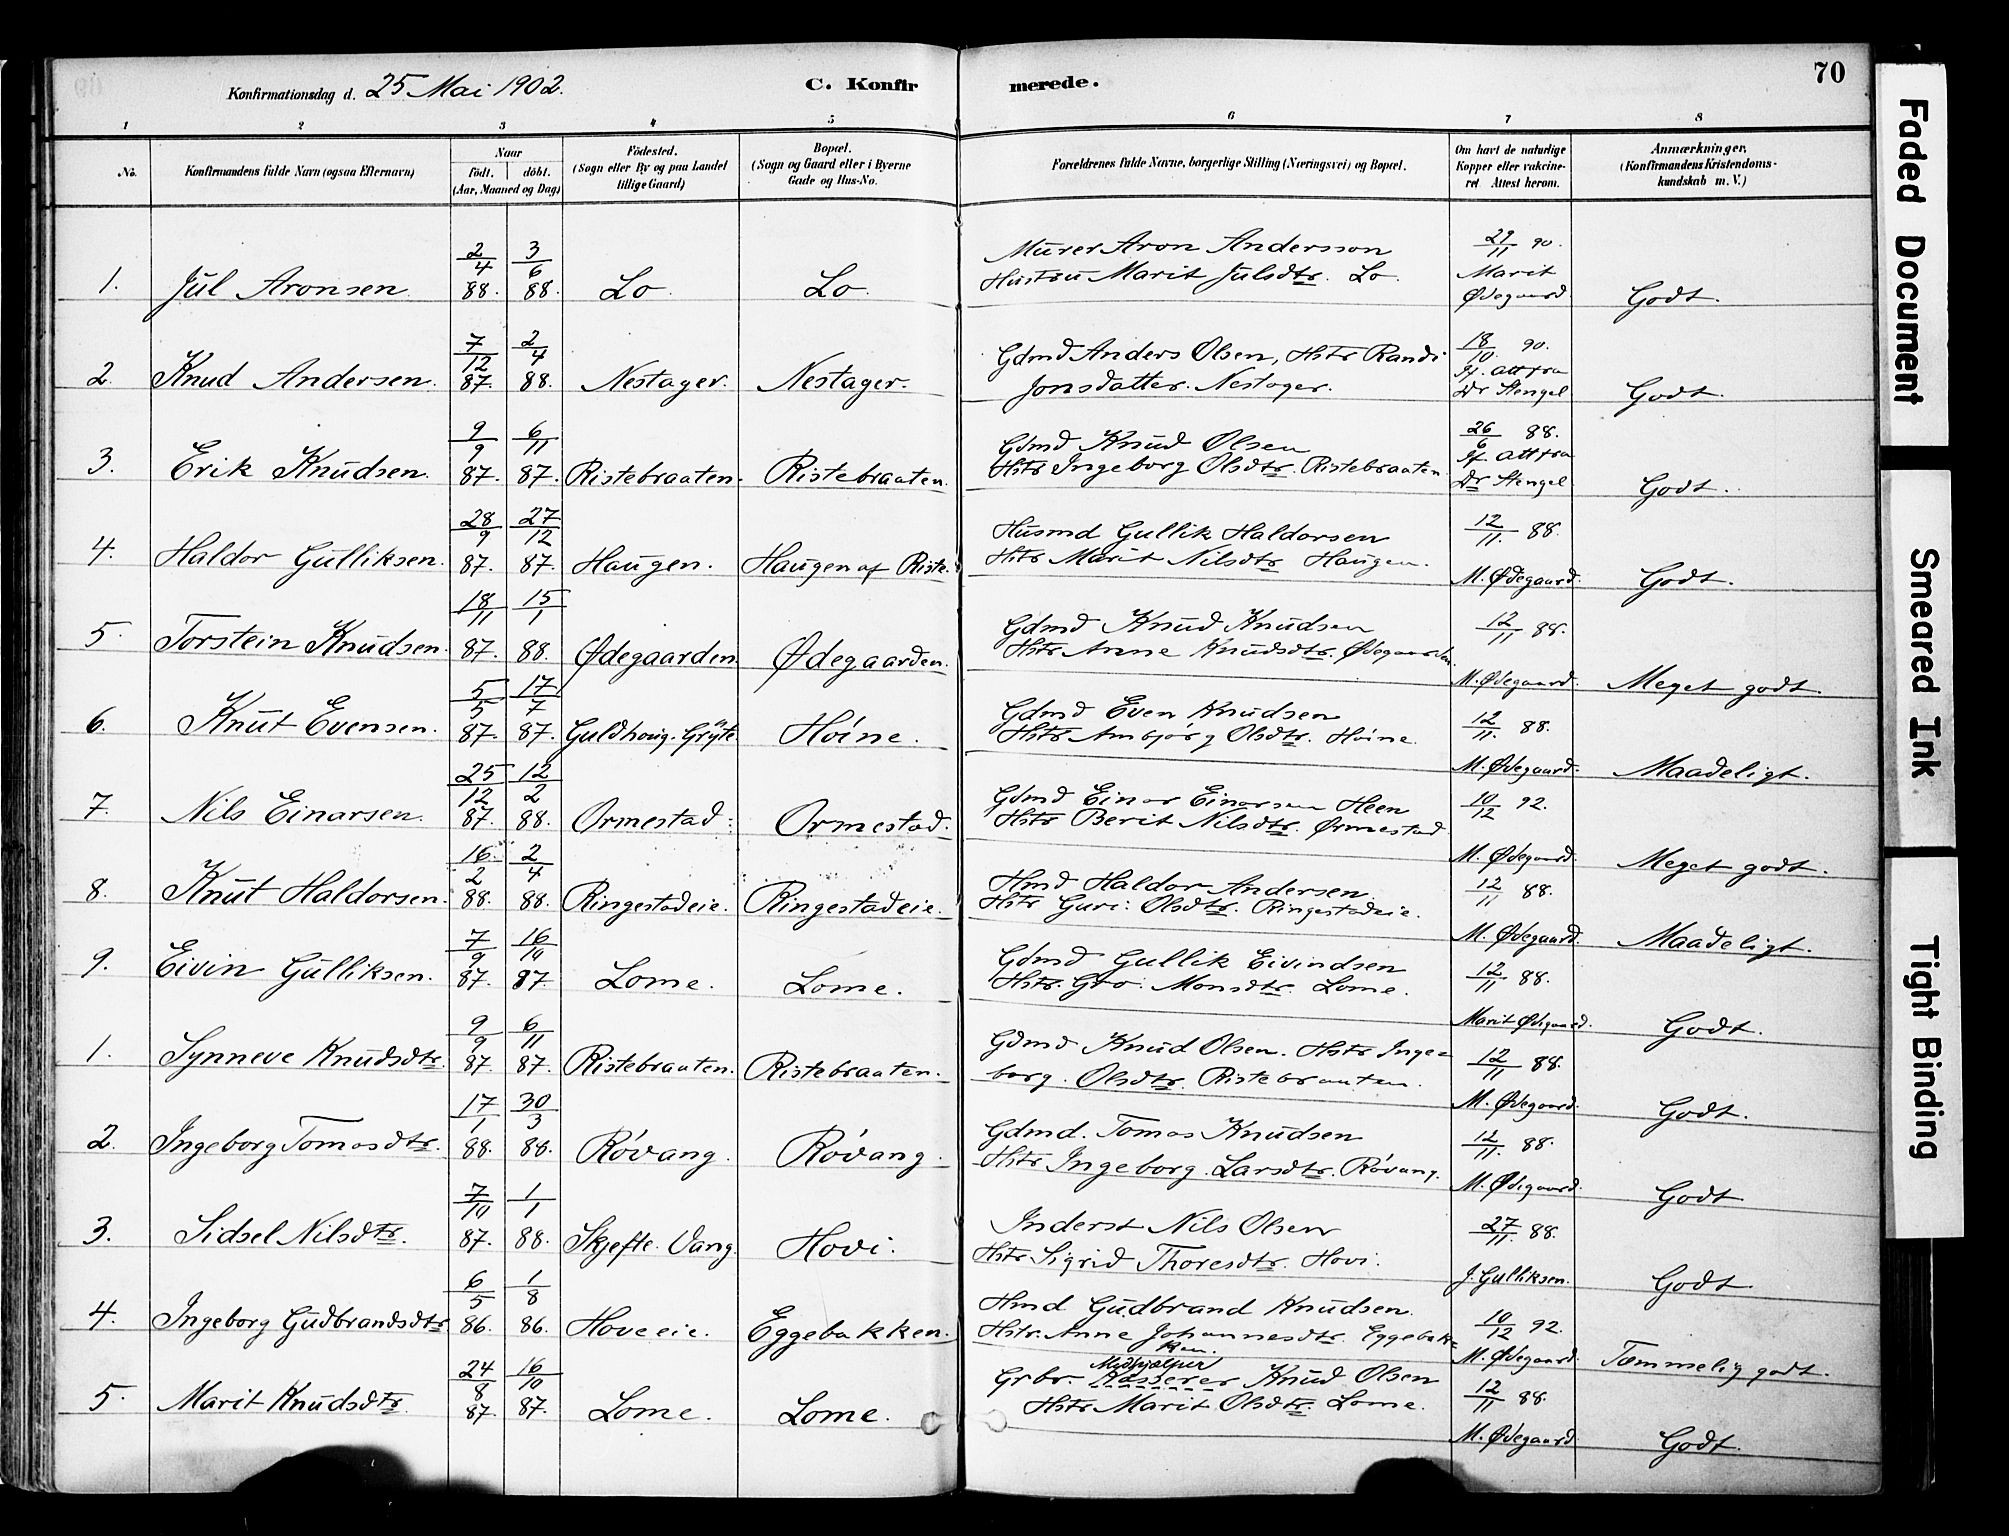 Konfirmationsdag d. 25 Mai 1902.
C. Konfirmerede.
70
1 2 3 4 5 6 7 8
No.
Konfirmandens fulde Navn (ogsaa Efternavn)
Naar
födt. | döbt.
(Aar, Maaned og Dag)
Födested.
(Sogn eller By og paa Landet
tillige Gaard)
Bopæl.
(Sogn og Gaard eller i Byerne
Gade og Hus-No.
Forældrenes fulde Navne, borgerlige Stilling (Næringsvei) og Bopæl.
Om havt de naturlige
Kopper eller vakcine-
ret Attest herom.
Anmærkninger.
(Konfirmandens Kristendoms-
kundskab m. V.)
1. Jul Aronsen. 2/4 88. 3/6 88. Lo. Lo.
Murer Aron Andersson
Hustru Marit Julsdtr. Lo.
29/11 90.
Marit
Ødegaard
Godt.
2. Knud Andersen. 7/12 87. 2/4 88. Nestager. Nestager.
Gdmd Anders Olsen, Hstr Randi
Jonsdatter. Nestager.
18/10. 90.
If. att fra
Dr Stengel
Godt.
3. Erik Knudsen. 9/9 87. 6/11 87. Ristebraaten. Ristebraaten.
Gdmd Knud Olsen
Hstr Ingeborg Olsdtr. Ristebraaten
26/6 88.
If. att fra
Dr Stengel
Godt.
4. Haldor Gulliksen. 28/9 87. 27/12 87. Haugen. Haugen af Riste.
Husmd Gullik Haldorsen
Hstr Marit Nilsdtr Haugen.
12/11. 88.
M. Ødegaard.
Godt.
5. Torstein Knudsen. 18/11 87. 15/1 88. Ødegaarden. Ødegaarden.
Gdmd Knud Knudsen
Hstr Anne Knudsdtr. Ødegaarden.
12/11 88.
M. Ødegaard.
Meget godt.
6. Knut Evensen. 5/5 87. 17/7 87. Guldhoug. Gryte Höine.
Gdmd Even Knudsen
Hstr Ambjörg Olsdtr. Höine.
12/11. 88.
M. Ødegaard.
Maadeligt.
7. Nils Einarsen. 25/12 87. 12/2 88. Ormestad. Ormestad.
Gdmd Einar Einarsen Heen
Hstr Berit Nilsdtr. Ormestad
10/12 92.
M. Ødegaard.
Meget godt.
8. Knut Haldorsen. 16/2 88. 2/4 88. Ringestadeie. Ringestadeie.
Hmd Haldor Andersen.
Hstr Guri Olsdtr. Ringestadeie.
12/11 88.
M. Ødegaard.
Maadeligt.
9. Eivin Gulliksen. 7/9 87. 16/10 87 Lome. Lome.
Gdmd Gullik Eivindsen
Hstr. Gro Monsdtr. Lome.
12/11 88.
Marit Ødegaard.
Godt.
1. Synneve Knudsdtr. 9/9 87. 6/11 87. Ristebraaten. Ristebraaten.
Gdmd Knud Olsen. Hstr Inge=
borg. Olsdtr. Ristebraaten.
12/11 88.
M. Ødegaard.
Godt.
2. Ingeborg Tomasdtr. 17/1 88. 30/3 88. Róvang. Róvang.
Gdmd. Tomas Knudsen
Hstr Ingeborg Larsdtr. Róvang.
12/11. 88.
M. Ødegaard.
Godt
3. Sidsel Nilsdtr. 7/10 87. 1/1 88. Skjefte. Vang. Hovi.
Inderst Nils Olsen
Hstr Sigrid Thoresdtr. Hovi.
27/11. 88.
J. Gulliksen.
Godt
4. Ingeborg Gudbrandsdtr 6/5 86. 1/8 86. Hoveeie. Eggebakken.
Hmd Gudbrand Knudsen.
Hstr. Anne Johannesdtr. Eggebak=
ken.
10/12 92.
M. Ødegaard.
Temmelig godt.
5. Marit Knudsdtr. 24/8 87. 16/10 87. Lome. Lome.
Medhjælper
Grbr. Kasserer Knud Olsen
Hstr Marit Olsdtr. Lome.
12/11 88.
M. Ødegaard
Godt.
Faded Document
Smeared Ink
Tight Binding